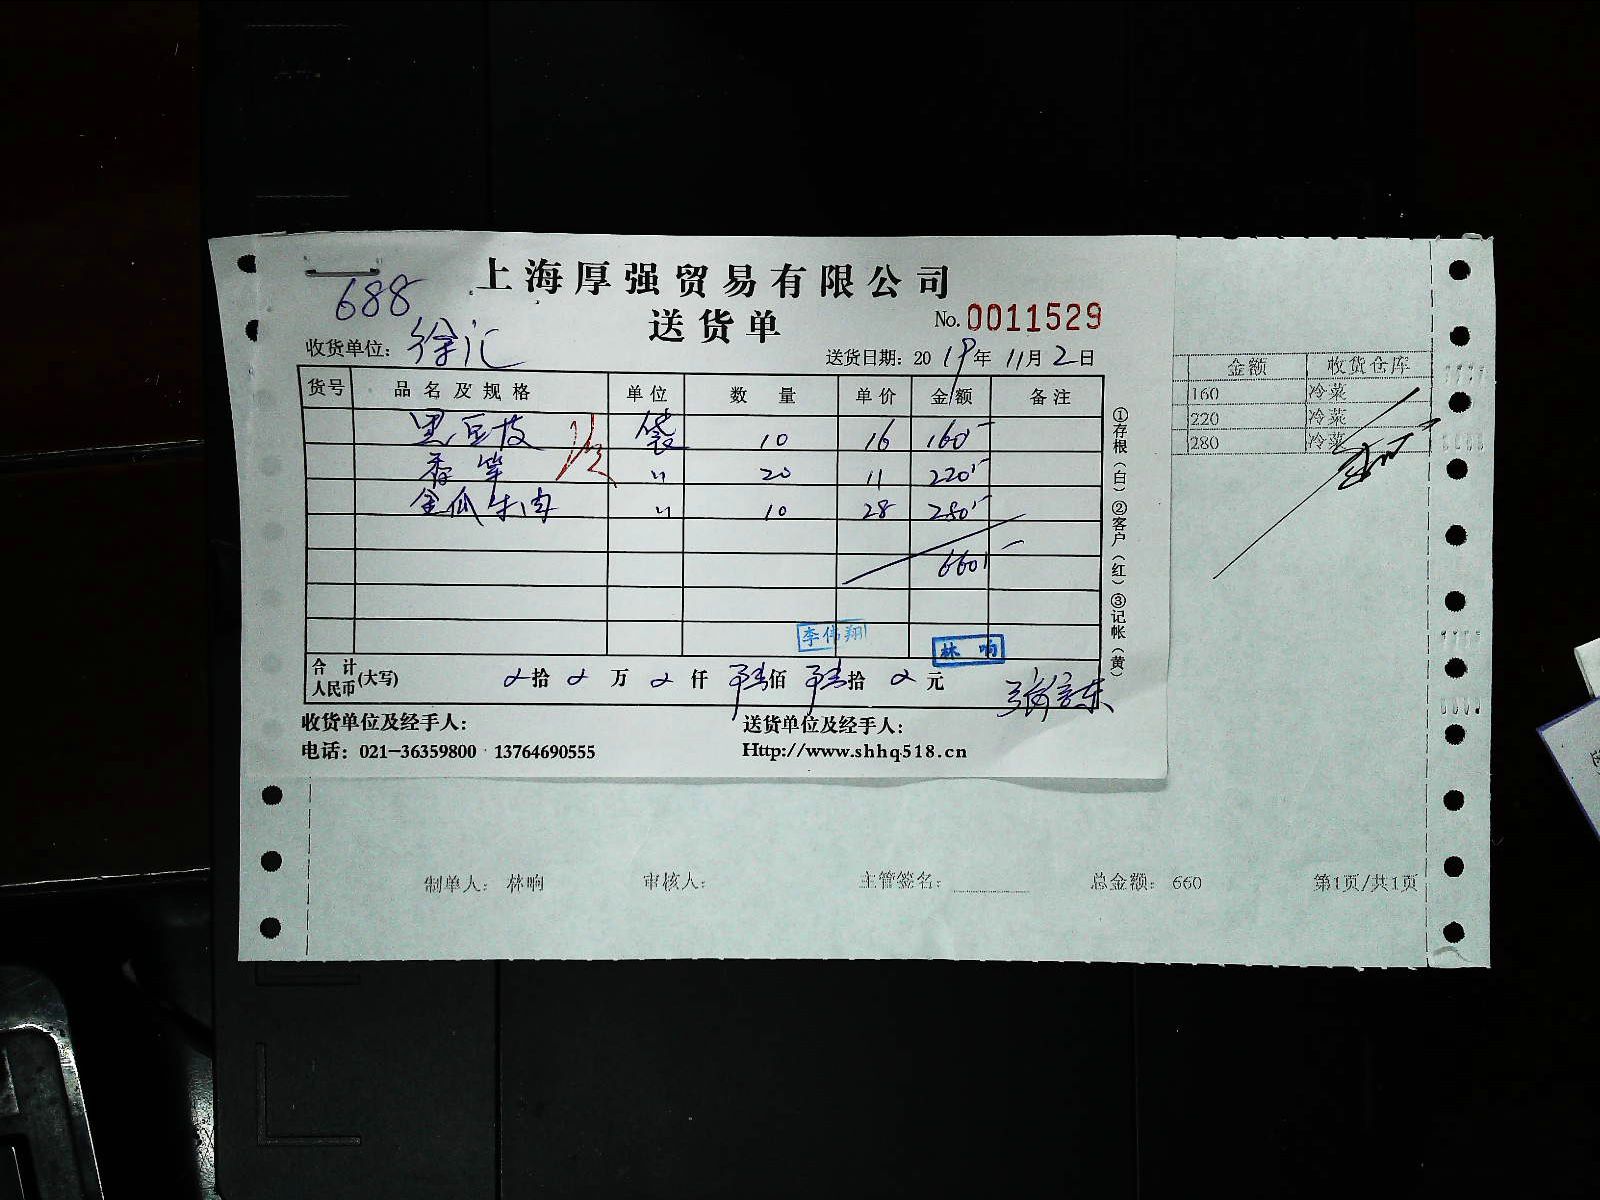 688
上海厚强贸易有限公司
送货单
No. 0011529
收货单位: 徐汇
送货日期: 2019年 11月 2日
货号 品名及规格 单位 数量 单价 金额 备注
黑豆皮 袋 10 16 160
香笋 〃 20 11 220
金瓜牛肉 〃 10 28 280
660
李伟翔
林响
合计人民币(大写) 拾 万 仟 陆佰 陆拾 元
收货单位及经手人:
送货单位及经手人:
电话: 021-36359800 13764690555
Http://www.shhq518.cn
①存根(白)②客户(红)③记帐(黄)
金额 收货仓库
160 冷菜
220 冷菜
280 冷菜
制单人: 林响 审核人: 主管签名: 总金额: 660 第1页/共1页